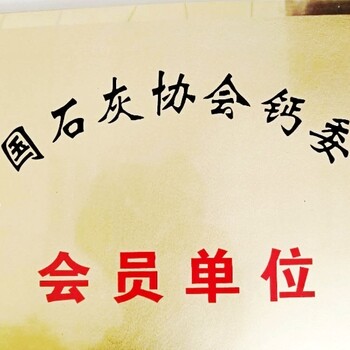 国石灰协会钙委
会员单位